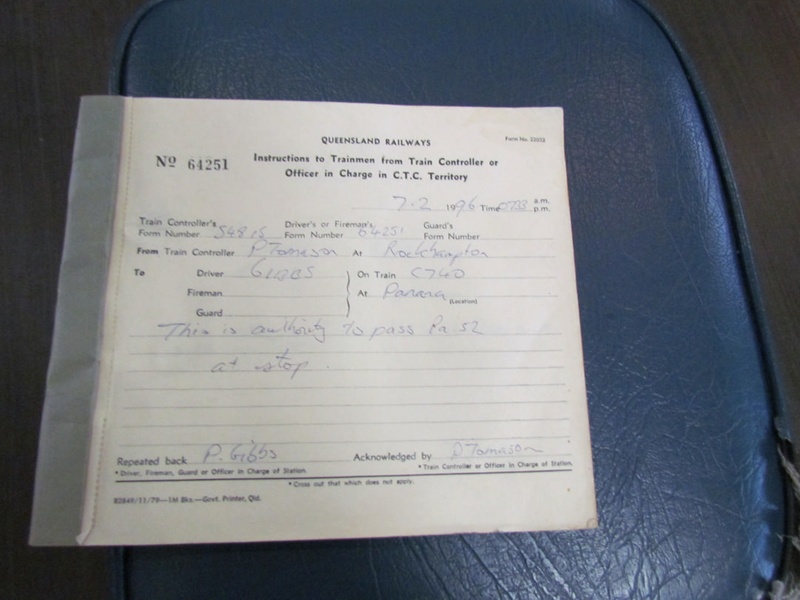 QUEENSLAND RAILWAYS
Form No. 22052
Nº 64251
Instructions to Trainmen from Train Controller or
Officer in Charge in C.T.C. Territory
7-2 1996 Time 0723 a.m. p.m.
Train Controller's Form Number 54815 Driver's or Fireman's Form Number 64251 Guard's Form Number
From Train Controller P Tomason At Rockhampton
To Driver GIBBS On Train C740
Fireman At (Location)
Guard
This is authority to pass Pa 52
at stop.
Repeated back P. Gibbs Acknowledged by P Tomason
* Driver, Fireman, Guard or Officer in Charge of Station. * Train Controller or Officer in Charge of Station.
* Cross out that which does not apply.
82849/11/79—1M Bks.—Govt. Printer, Qld.